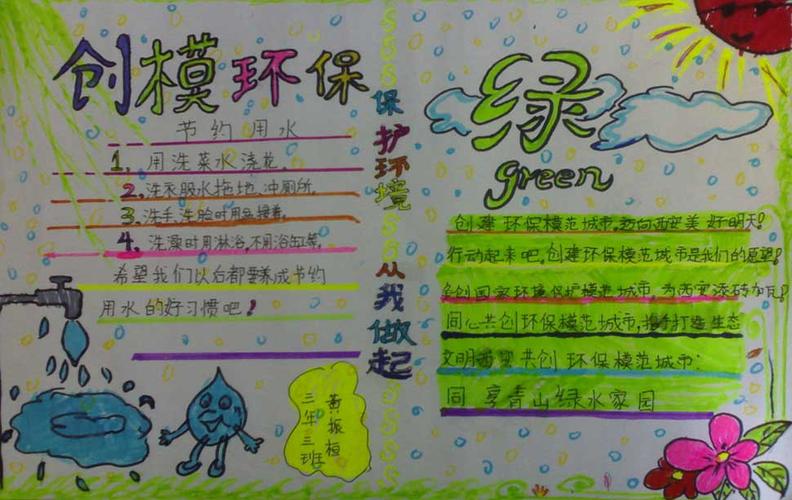 创模环保
节约用水
1. 用洗菜水浇花.
2. 洗衣服水拖地.冲厕所.
3. 洗手.洗脸时用盆接着,
4. 洗澡时用淋浴,不用浴缸等,
希望我们以后都要养成节约
用水的好习惯吧!
黄振桓
三年三班
保护环境
从我做起
绿
green
创建环保模范城市,迈向西安美好明天!
行动起来吧,创建环保模范城市是我们的愿望!
全创国家环境保护模范城市,为西安添砖加瓦!
同心共创环保模范城市,携手打造生态
文明西安共创环保模范城市:
同享青山绿水家园